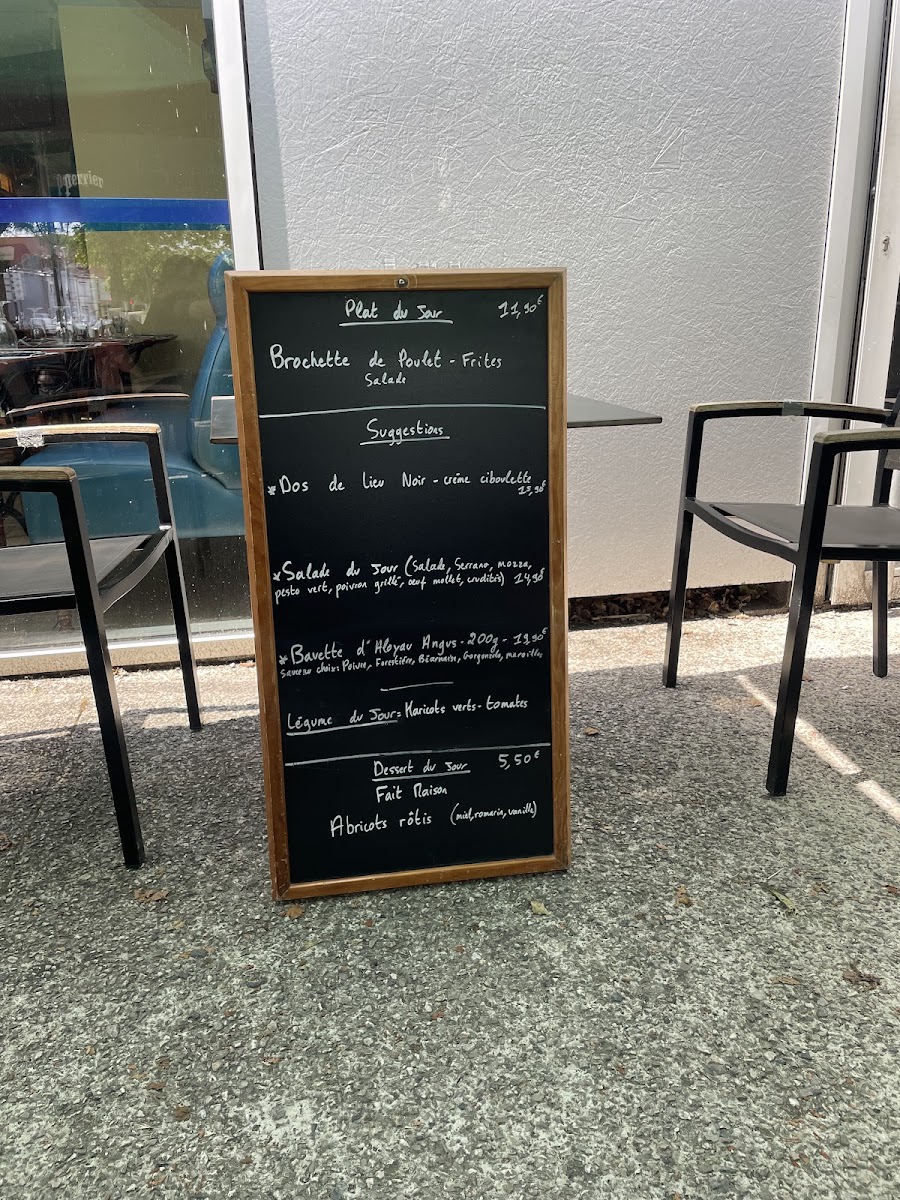 Perrier
Plat du Jour 11,90€
Brochette de Poulet - Frites
Salade
Suggestions
*Dos de Lieu Noir - crème ciboulette
15,90€
*Salade du Jour (Salade, Serrano, mozza,
pesto vert, poivron grillé, oeuf mollet, crudités) 14,90€
*Bavette d'Aloyau Angus - 200g - 19,90€
Sauce au choix: Poivre, Forestière, Béarnaise, Gorgonzola, maroilles
Légume du Jour: Haricots verts - tomates
Dessert du Jour 5,50€
Fait Maison
Abricots rôtis (miel, romarin, vanille)